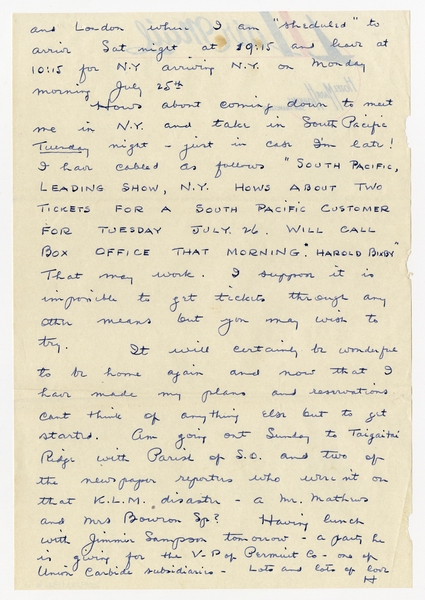 and London when I am "scheduled" to
arrive Sat night at 19:15 and leave at
10:15 for N.Y arriving N.Y. on Monday
morning July 25th
Hows about coming down to meet
me in N.Y. and take in South Pacific
Tuesday night - just in case I'm late!
I have cabled as follows "SOUTH PACIFIC,
LEADING SHOW, N.Y. HOWS ABOUT TWO
TICKETS FOR A SOUTH PACIFIC CUSTOMER
FOR TUESDAY JULY. 26. WILL CALL
BOX OFFICE THAT MORNING. HAROLD BIXBY"
That may work. I suppose it is
impossible to get tickets through any
other means but you may wish to
try. It will certainly be wonderful
to be home again and now that I
have made my plans and reservations
cant think of anything else but to get
started. Am going out Sunday to Taigaitai
Ridge with Parish of S.O. and two of
the newspaper reporters who weren't on
that K.L.M. disaster - a Mr. Mathews
and Mrs Bowron Sp? Having lunch
with Jimmie Sampson tomorrow - a party he
is giving for the V-P of Permuit Co - one of
Union Carbide subsidiaries - Lots and lots of love
H